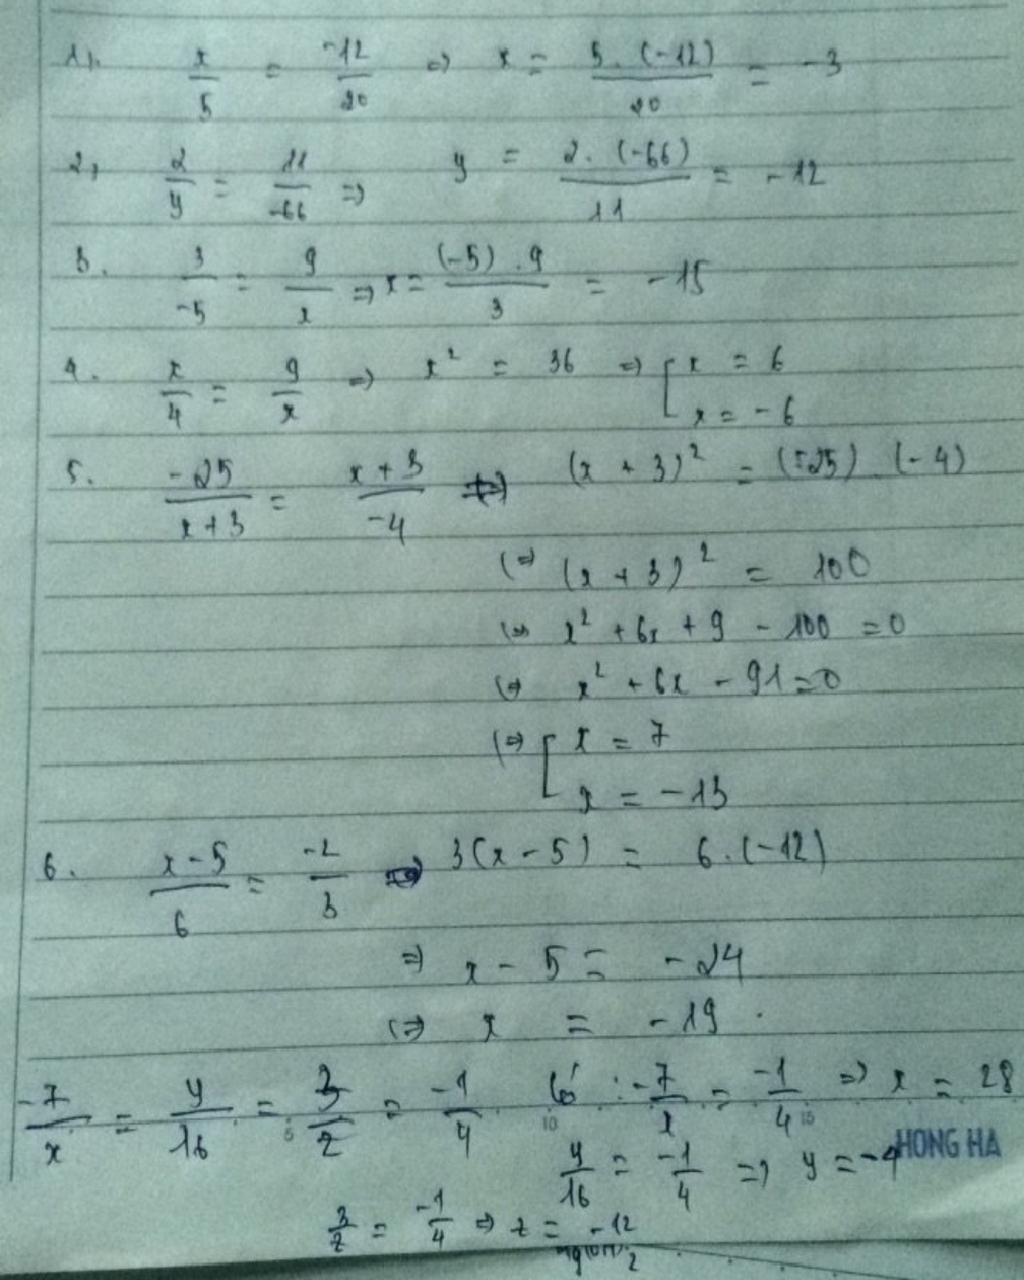 1). x/5 = -12/20 => x = 5.(-12)/20 = -3
2, 2/y = 11/-66 => y = 2.(-66)/11 = -12
3. 3/-5 = 9/x => x = (-5).9/3 = -15
4. x/4 = 9/x => x² = 36 => [ x = 6
x = -6
5. -25/x+3 = x+3/-4 (x + 3)² = (-25) (-4)
(=> (x + 3)² = 100
(=> x² + 6x + 9 - 100 = 0
(=> x² + 6x - 91 = 0
(=> [ x = 7
x = -13
6. x-5/6 = -2/3 => 3(x - 5) = 6.(-12)
=> x - 5 = -24
(=> x = -19.
-7/x = y/16 = 3/z = -1/4 có : -7/x = -1/4 => x = 28
5 10 15
HONG HA
y/16 = -1/4 => y = -4
3/z = -1/4 => z = -12